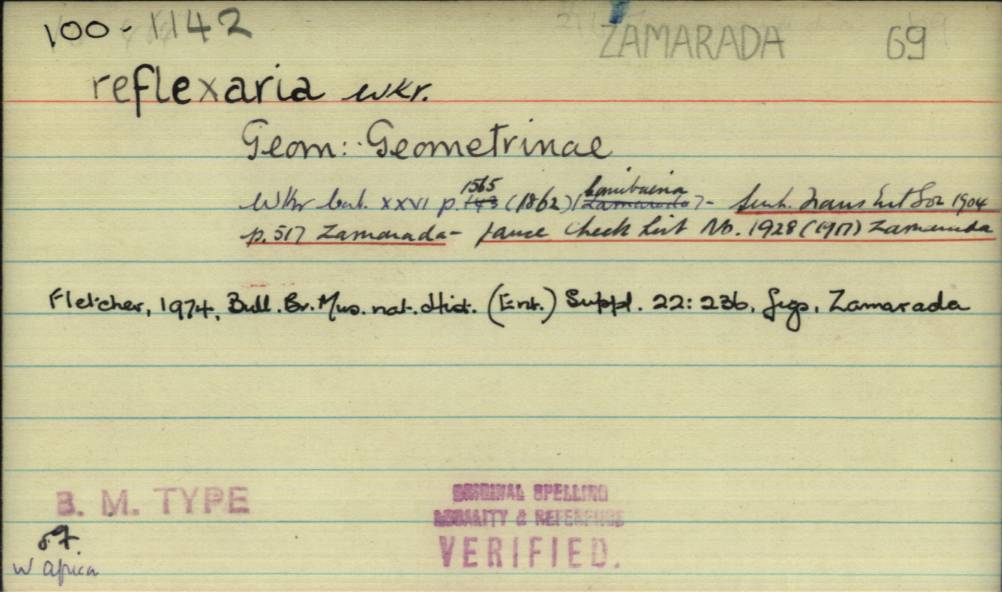 100-1142
ZAMARADA 69
reflexaria wkr.
Geom: Geometrinae
1565 Comibaena
Wkr Cat. XXVI p. 143 (1862) (Zamarada) - Swinh. Trans Ent Soc 1904
p. 517 Zamarada - Janse Check List No. 1928 (1917) Zamarada
Fletcher, 1974, Bull. Br. Mus. nat. Hist. (Ent.) Suppl. 22: 236, figs, Zamarada
B. M. TYPE
ORIGINAL SPELLING
LOCALITY & REFERENCE
VERIFIED.
W Africa